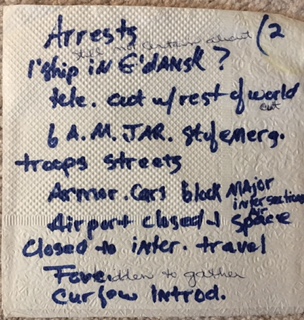 Arrests (2
about
1'ship in G'dansk?
tele. cut w/rest of world
cut
6 A.M. JAR. St of emerg.
troops streets
Armor. Cars block major intersections
Airport closed & Air space
Closed to inter. travel
Forbidden to gather
Curfew introd.